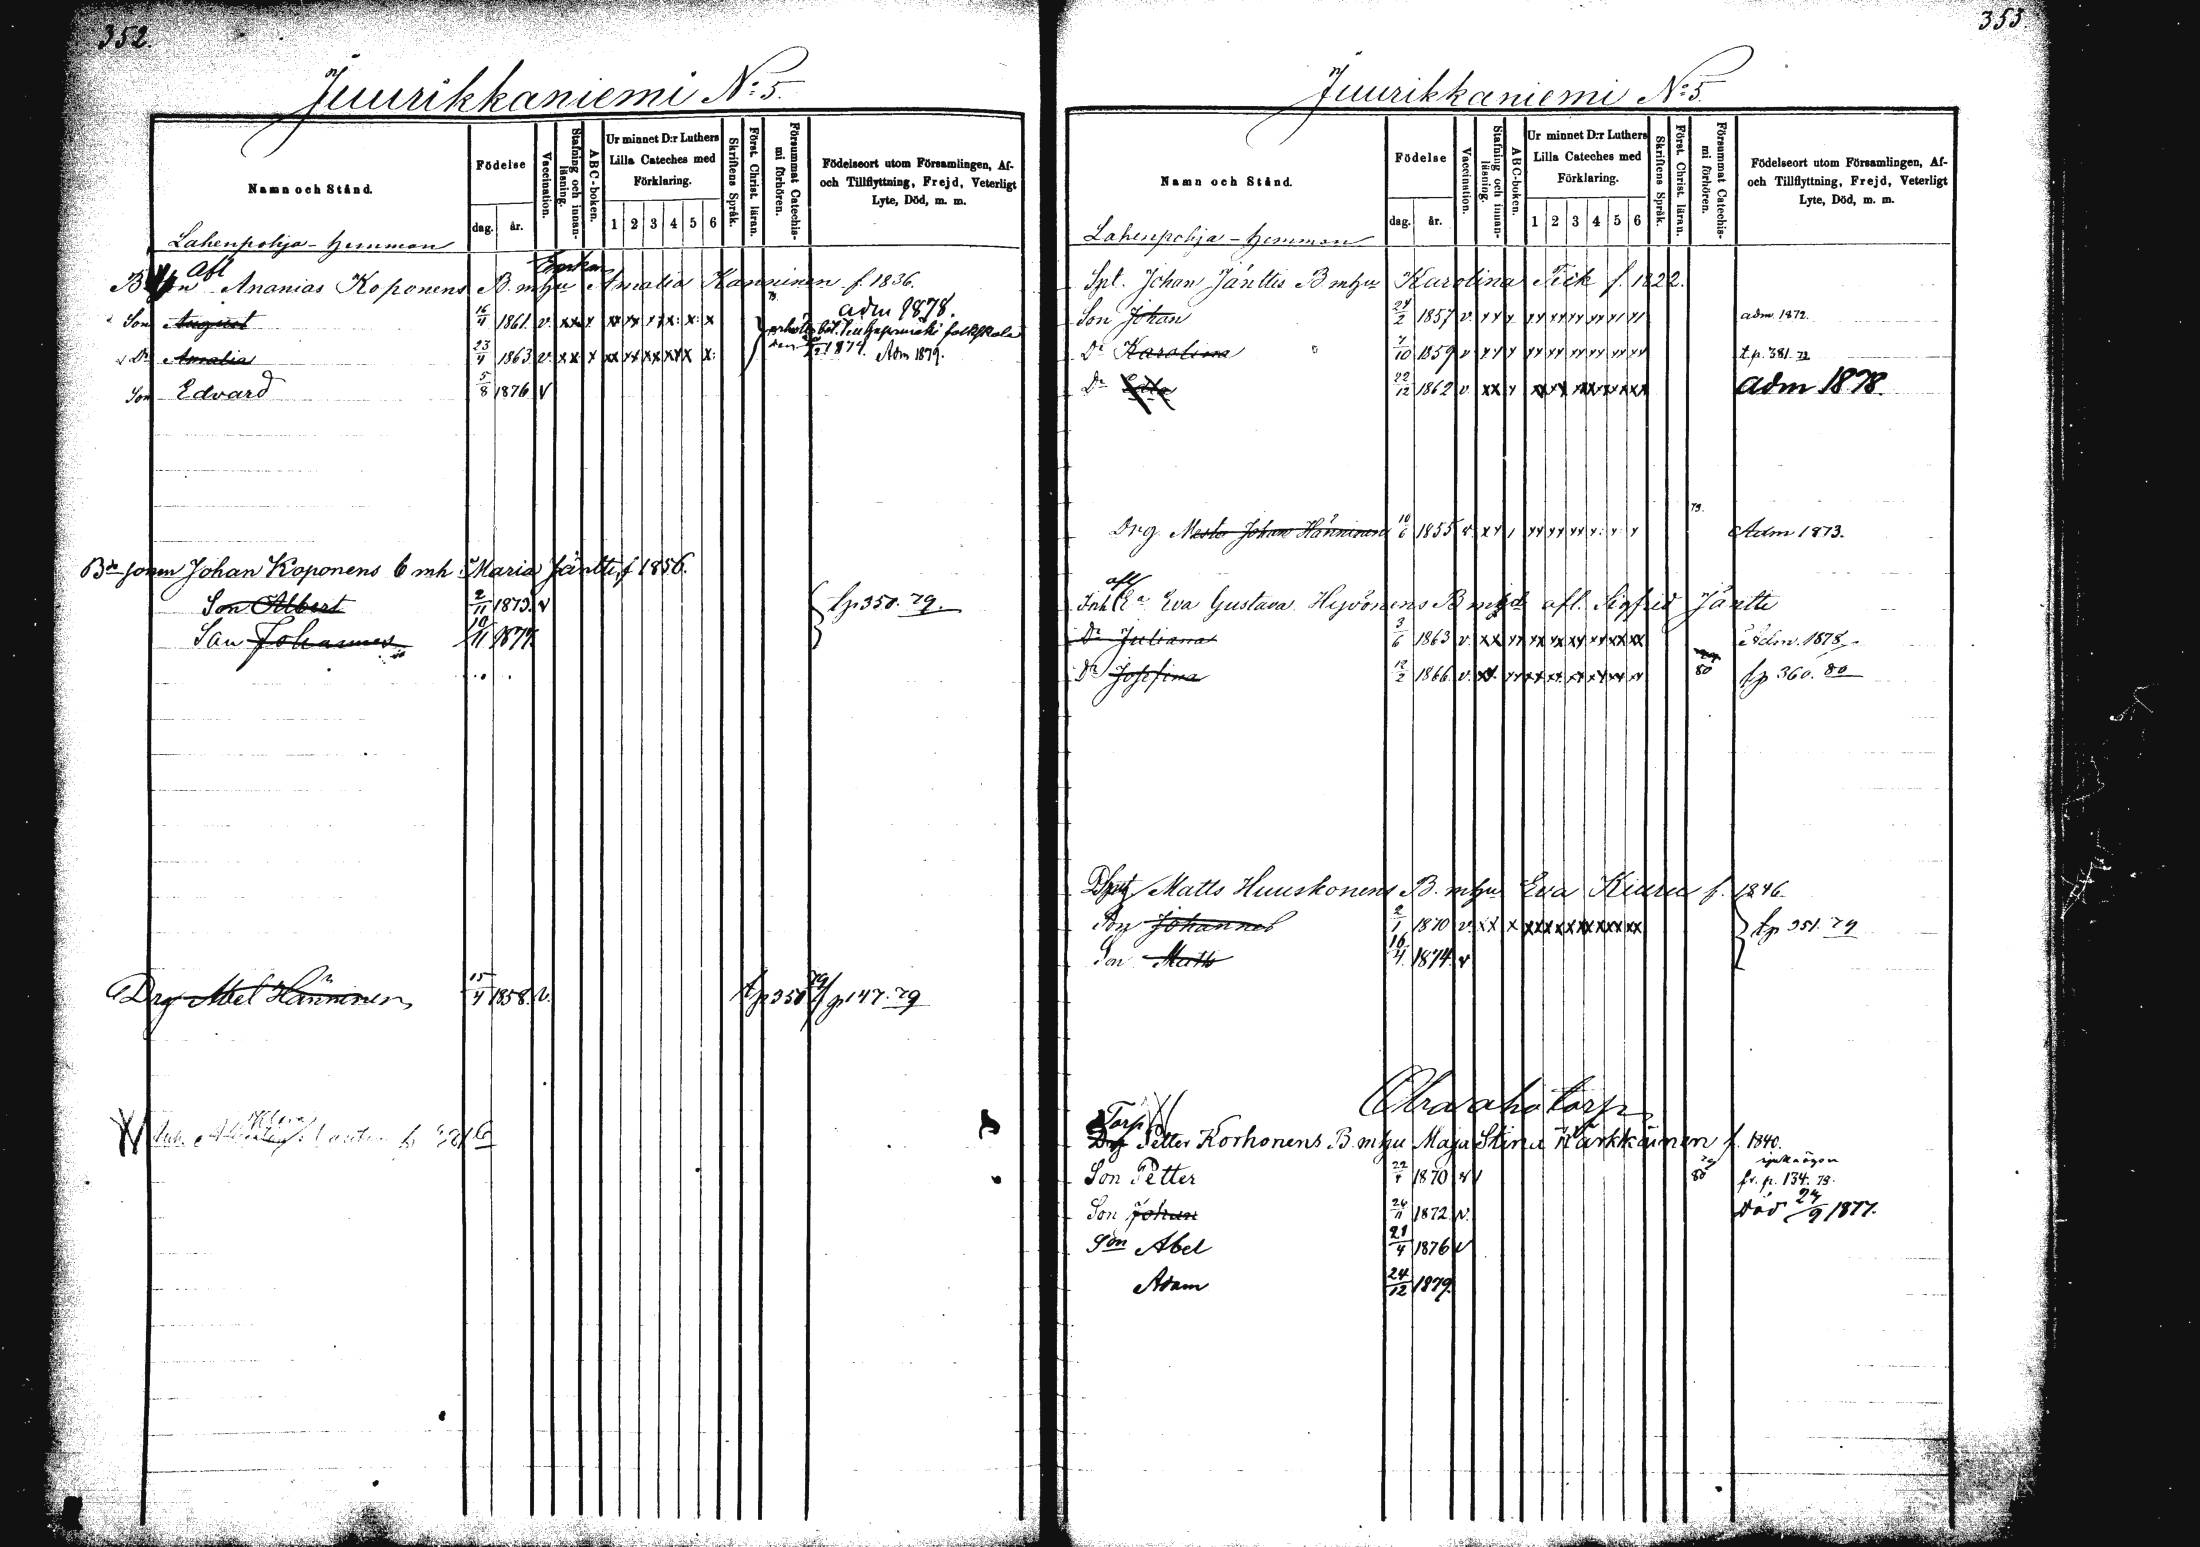 352.
Juurikkaniemi No: 5.
Namn och Stånd.
Födelse
dag. år.
Vaccination.
Stafning och innanläsning.
ABC-boken.
Ur minnet D:r Luthers Lilla Cateches med Förklaring.
1 2 3 4 5 6
Skriftens Språk.
Först. Christ. läran.
Försummat Catechismi förhören.
Födelseort utom Församlingen, Af- och Tillflyttning, Frejd, Veterligt Lyte, Död, m. m.
Lahenpohja - hemman
Enkan
afl Ananias Koponens B. mhu Amalia Hänninen f. 1836.
Son August 16/4 1861. v. adm 1878.
Dr Amalia 23/4 1863 v. Adm 1879.
folkskola
Son Edvard 5/8 1876 v
Bde sonen Johan Koponens b mh: Maria Jäntti, f 1856.
Son Albert 2/11 1873. v tp 350. 79.
Son Johannes 10/11 1877.
Drg Abel Hänninen 15/4 1858. v. tp 350 79 / p 147. 79
353.
Juurikkaniemi No: 5.
Namn och Stånd.
Födelse
dag. år.
Vaccination.
Stafning och innanläsning.
ABC-boken.
Ur minnet D:r Luthers Lilla Cateches med Förklaring.
1 2 3 4 5 6
Skriftens Språk.
Först. Christ. läran.
Försummat Catechismi förhören.
Födelseort utom Församlingen, Af- och Tillflyttning, Frejd, Veterligt Lyte, Död, m. m.
Lahenpohja - hemman
Spt. Johan Jänttis B mhu Karolina Fick f. 1822.
Son Johan 24/2 1857 v. adm. 1872.
Dr Karolina 7/10 1859 v t.p. 381. 72
Dr 22/12 1862 v. adm 1878.
73.
Drg Johan Hänninen 10/6 1855 v. Adm 1873.
afl
Inh Ea Eva Gustava Hyvönens B mhd afl. Sigfrid Jäntti
Dr Juliana 3/6 1863 v. Adm. 1878
Dr Josefina 12/2 1866. v. 80 tp 360. 80
Matts Huuskonens B. mhu Eva Kiuru f. 1846
Son Johannes 2/1 1870 v. tp 351. 79
Son Matts 16/4 1874. v
Ahoaho torp
Torp
Petter Korhonens B. mhu Maja Stina Kärkkäinen f. 1840.
Son Petter 1870 v 80 fr. p. 134. 73.
Son Johan 24/11 1872 v. död 24/9 1877.
Son Abel 21/4 1876 v
Adam 24/12 1879.